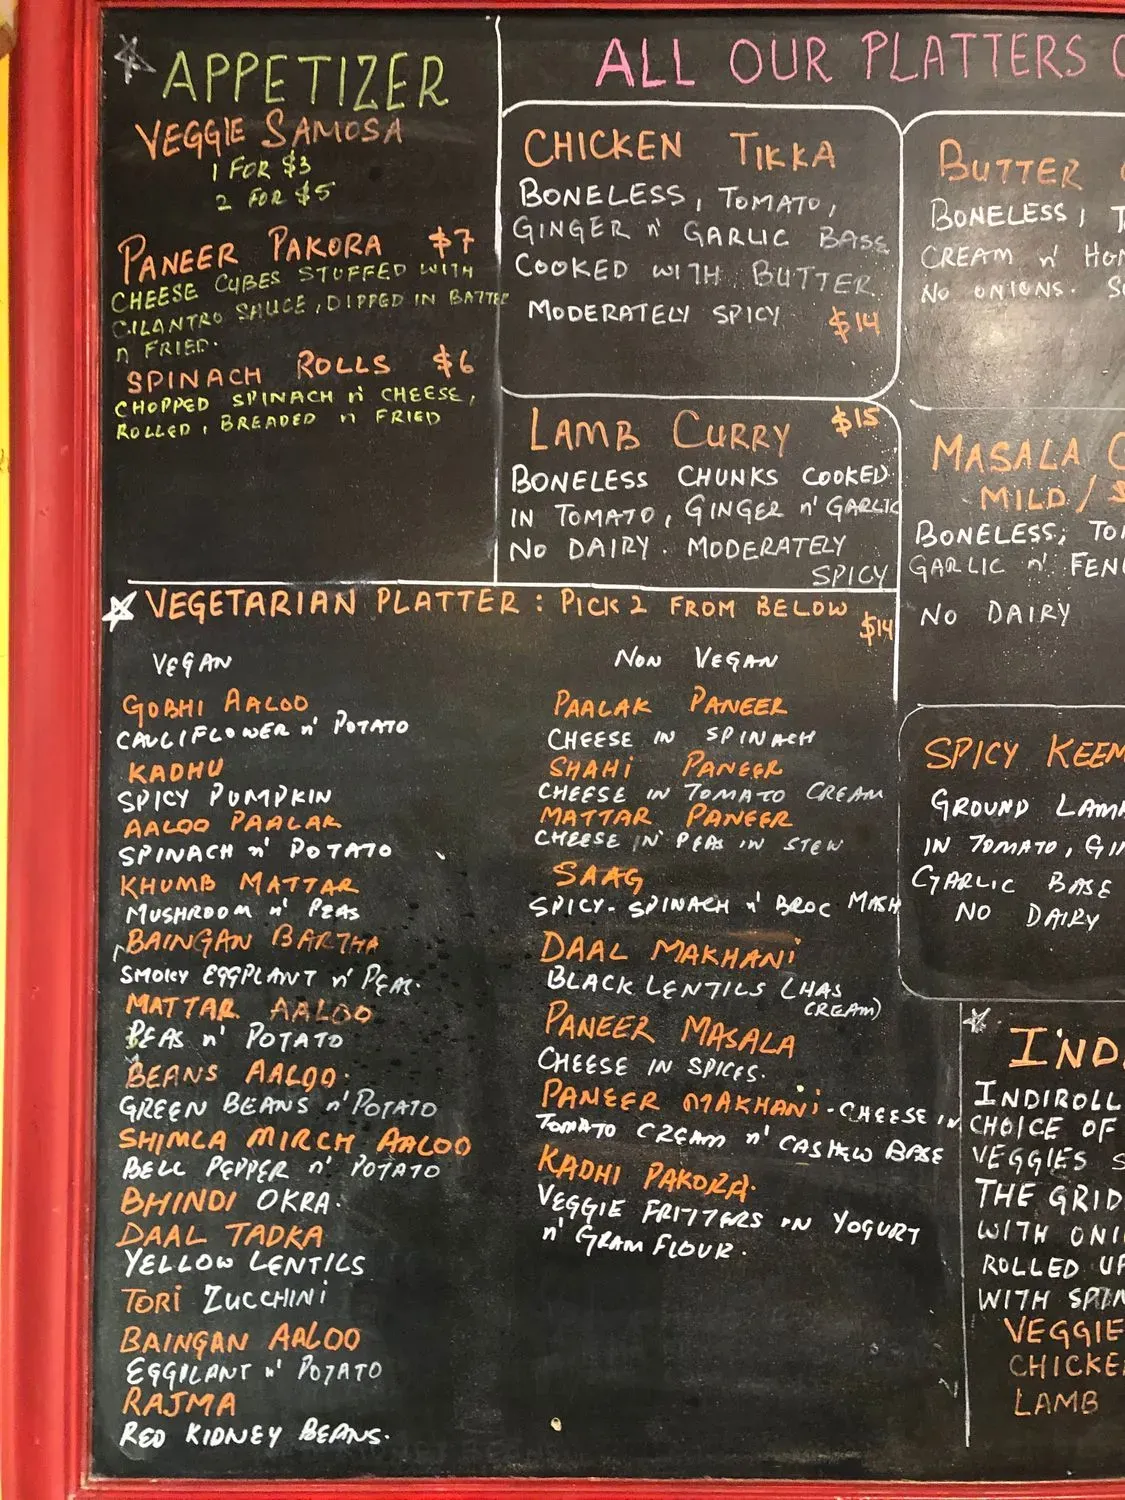 APPETIZER
VEGGIE SAMOSA
1 FOR $3
2 FOR $5
PANEER PAKORA $7
CHEESE CUBES STUFFED WITH
CILANTRO SAUCE, DIPPED IN BATTER
n FRIED.
SPINACH ROLLS $6
CHOPPED SPINACH n' CHEESE,
ROLLED, BREADED n FRIED
ALL OUR PLATTERS
CHICKEN TIKKA
BONELESS, TOMATO,
GINGER n' GARLIC BASE
COOKED WITH BUTTER
MODERATELY SPICY $14
LAMB CURRY $15
BONELESS CHUNKS COOKED
IN TOMATO, GINGER n' GARLIC
NO DAIRY. MODERATELY
SPICY
BUTTER
BONELESS,
CREAM n'
NO ONIONS.
MASALA
MILD /
BONELESS,
GARLIC n'
NO DAIRY
SPICY
GROUND
IN TOMATO,
GARLIC BASE
NO DAIRY
VEGETARIAN PLATTER: PICK 2 FROM BELOW $14
VEGAN
GOBHI AALOO
CAULIFLOWER n' POTATO
KADHU
SPICY PUMPKIN
AALOO PAALAK
SPINACH n' POTATO
KHUMB MATTAR
MUSHROOM n' PEAS
BAINGAN BARTHA
SMOKY EGGPLANT n' PEAS.
MATTAR AALOO
PEAS n' POTATO
BEANS AALOO.
GREEN BEANS n' POTATO
SHIMLA MIRCH AALOO
BELL PEPPER n' POTATO
BHINDI OKRA.
DAAL TADKA
YELLOW LENTILS
TORI ZUCCHINI
BAINGAN AALOO
EGGPLANT n' POTATO
RAJMA
RED KIDNEY BEANS.
NON VEGAN
PAALAK PANEER
CHEESE IN SPINACH
SHAHI PANEER
CHEESE IN TOMATO CREAM
MATTAR PANEER
CHEESE IN PEAS IN STEW
SAAG
SPICY- SPINACH n' BROC MASH
DAAL MAKHANI
BLACK LENTILS (HAS
CREAM)
PANEER MASALA
CHEESE IN SPICES.
PANEER MAKHANI - CHEESE IN
TOMATO CREAM n' CASHEW BASE
KADHI PAKORA.
VEGGIE FRITTERS IN YOGURT
n' GRAM FLOUR.
INDIROLL
CHOICE OF
VEGGIES
THE
WITH
ROLLED
WITH
VEGGIE
LAMB